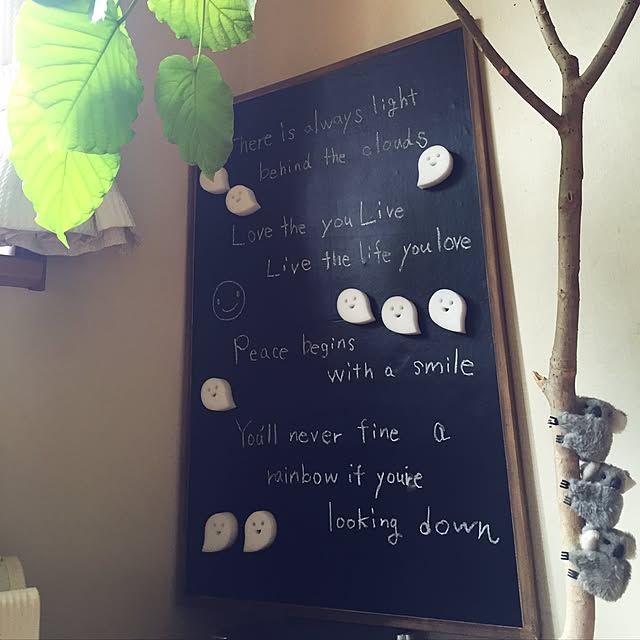 There is always light
behind the clouds
Love the you Live
Live the life you love
Peace begins
with a smile
You'll never fine a
rainbow if you're
looking down